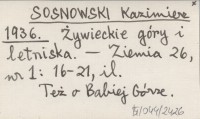 SOSNOWSKI Kazimierz
1936. Żywieckie góry i
letniska. – Ziemia 26,
nr 1: 16-21, il.
Też o Babiej Górze.
B/044/2426